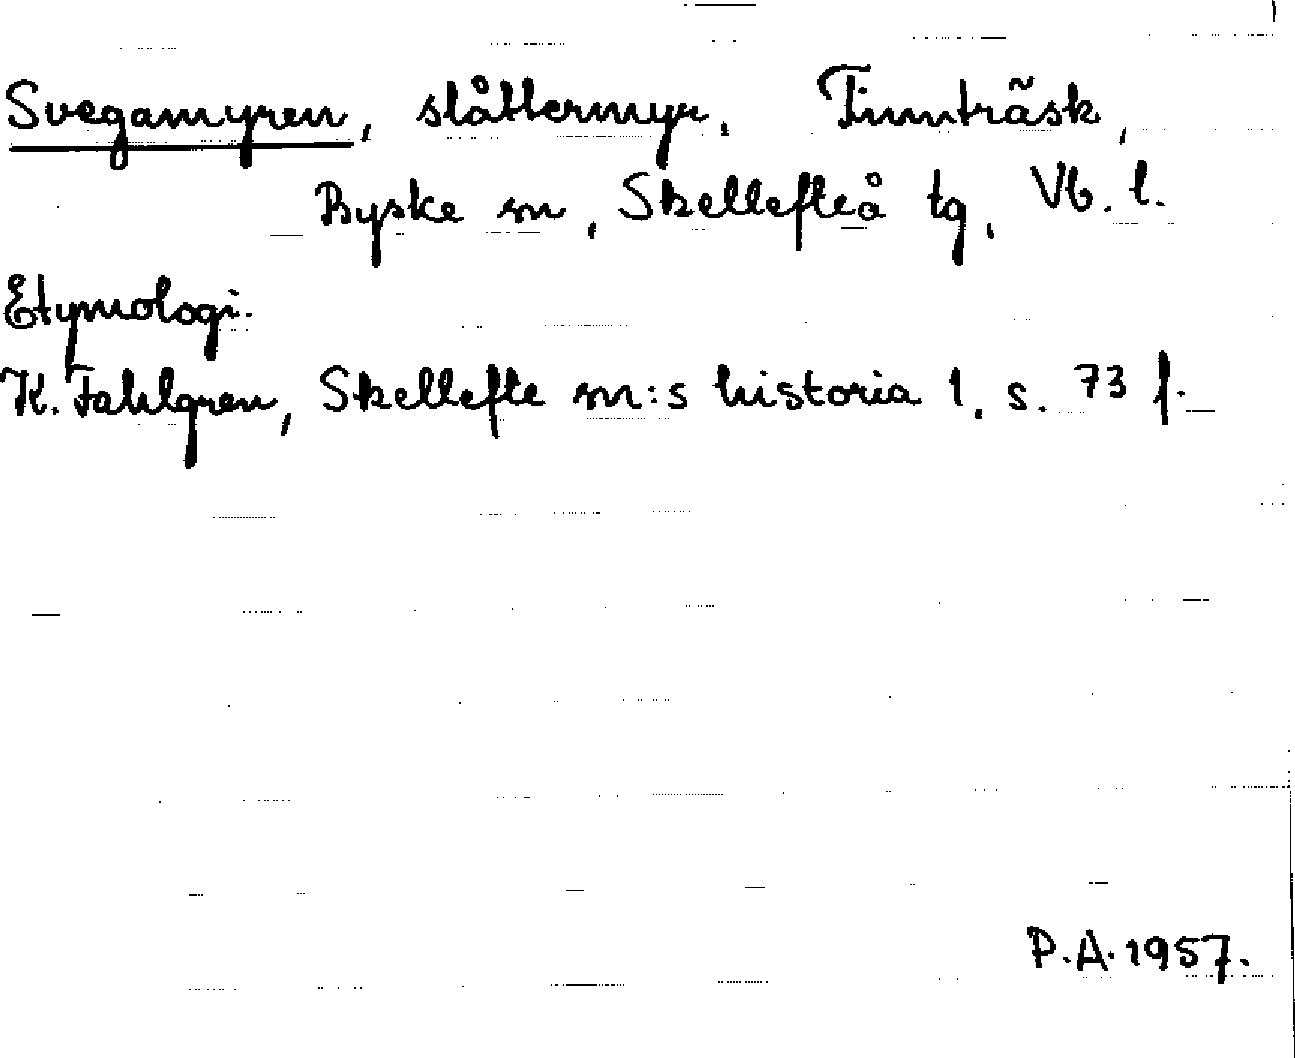 Svegamyren, slåttermyr, Finnträsk,
Byske sn, Skellefteå tg, Vb. l.
Etymologi.
K. Fahlgren, Skellefte sn:s historia 1. s. 73 f.
P.A. 1957.